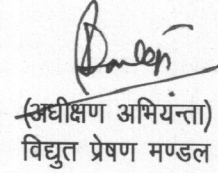 (अधीक्षण अभियन्ता)
विद्युत प्रेषण मण्डल